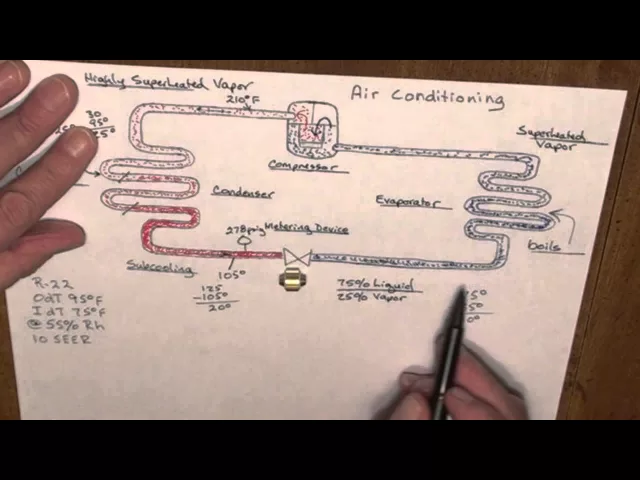 Highly Superheated Vapor
Air Conditioning
210°F
30
95°
125°
Superheated
Vapor
Compressor
Condenser
Evaporator
boils
278psig
Metering Device
Subcooling
105°
125
-105°
20°
75% Liquid
25% Vapor
R-22
OdT 95°F
IdT 75°F
@ 55% Rh
10 SEER